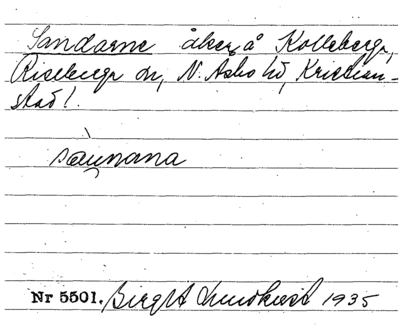 Sandarne åker å Kolleberga,
Riseberga sn, N. Åsbo hd, Kristian-
stad l.
saunana
Nr 5501. Birgit Lundkvist 1935